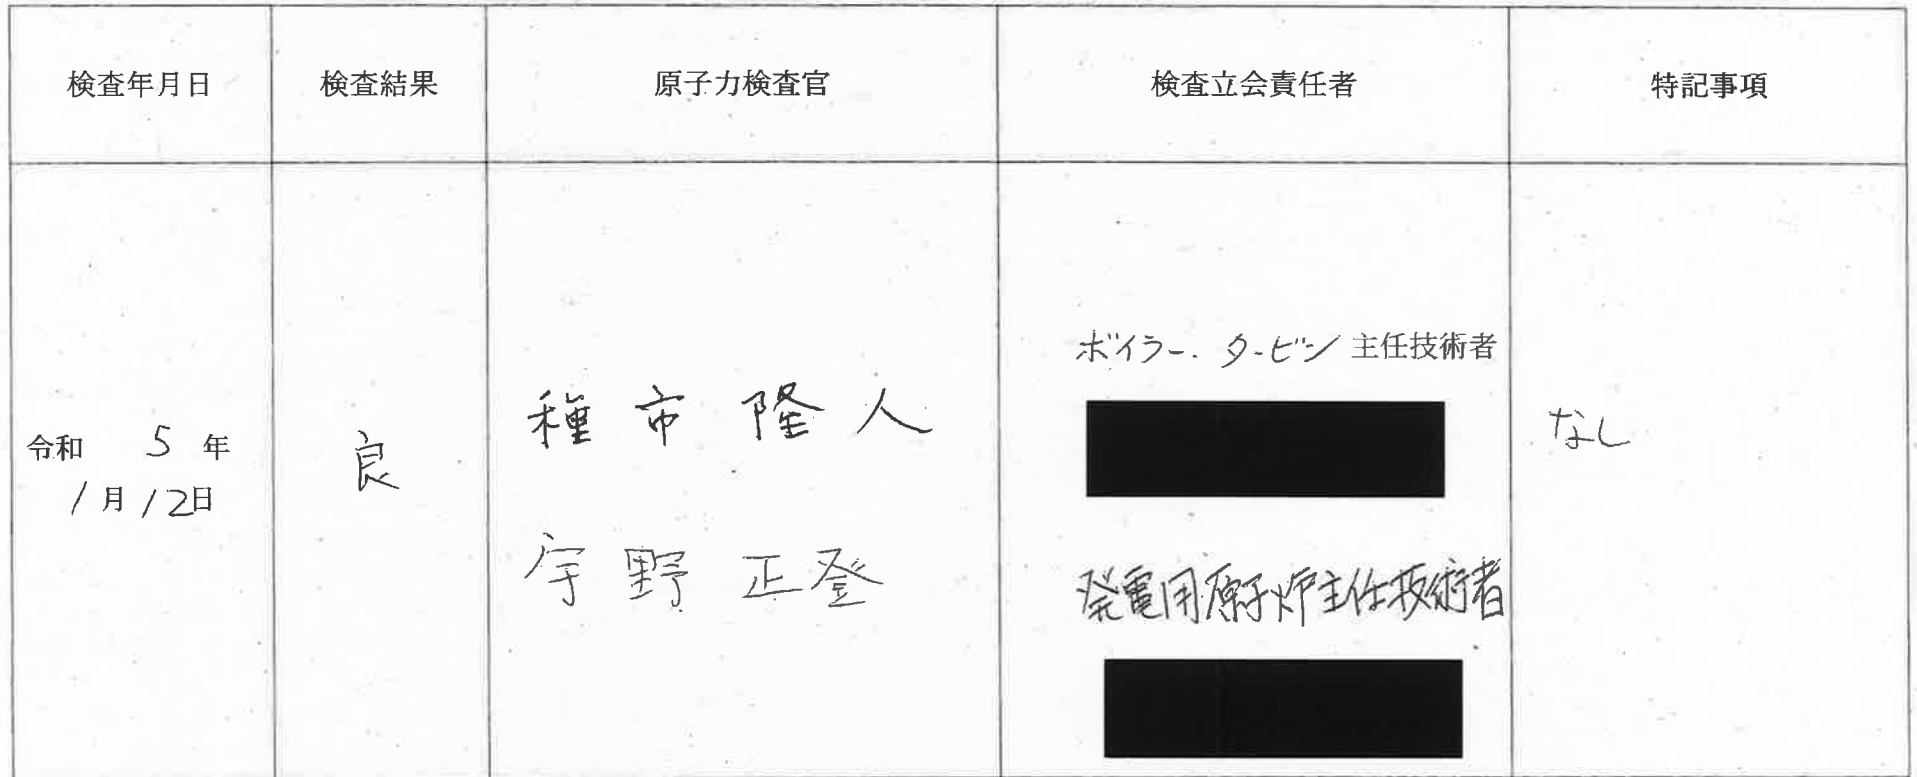 検査年月日
検査結果
原子力検査官
検査立会責任者
特記事項
令和 5 年
1月12日
良
種市隆人
宇野正登
ボイラー・タービン主任技術者
発電用原子炉主任技術者
なし